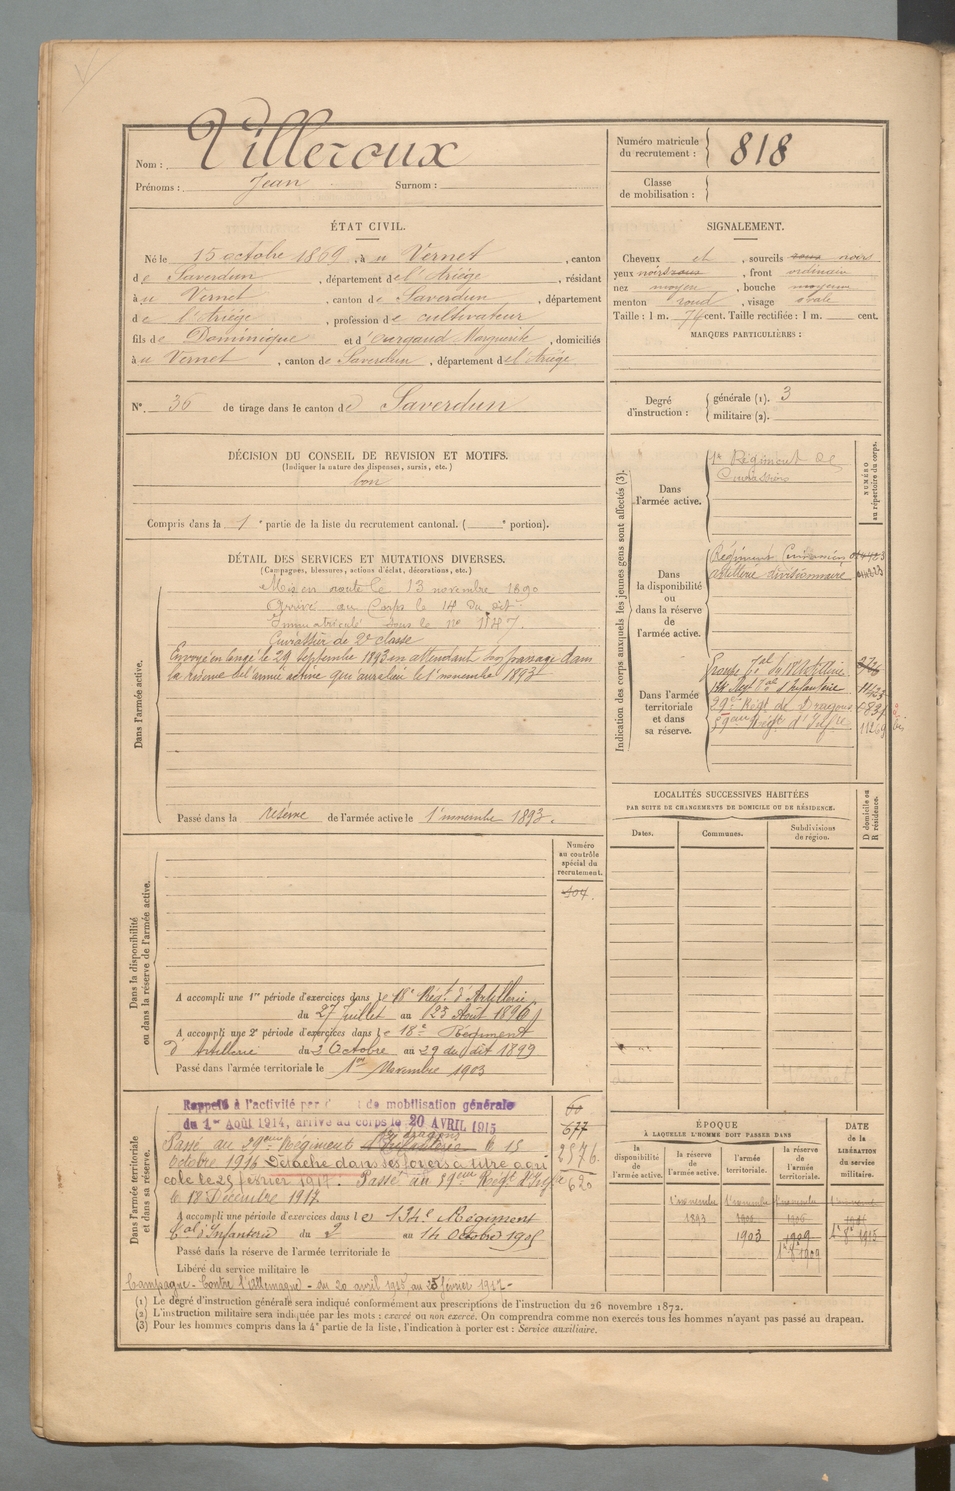 Nom : Villeroux
Prénoms : Jean Surnom :
Numéro matricule du recrutement : 818
Classe de mobilisation :
ÉTAT CIVIL.
Né le 15 octobre 1869, à u Vernet, canton
de Saverdun, département de l'Ariège, résidant
à u Vernet, canton de Saverdun, département
de l'Ariège, profession de cultivateur
fils de Dominique et d' Marguerite, domiciliés
à u Vernet, canton de Saverdun, département de l'Ariège
SIGNALEMENT.
Cheveux et, sourcils noirs
yeux noirs, front ordinaire
nez moyen, bouche moyenne
menton rond, visage ovale
Taille : 1 m. 74 cent. Taille rectifiée : 1 m. cent.
MARQUES PARTICULIÈRES :
N° 36 de tirage dans le canton de Saverdun
Degré d'instruction : générale (1). 3
militaire (2).
DÉCISION DU CONSEIL DE REVISION ET MOTIFS.
(Indiquer la nature des dispenses, sursis, etc.)
bon
Compris dans la 1e partie de la liste du recrutement cantonal. ( e portion).
DÉTAIL DES SERVICES ET MUTATIONS DIVERSES.
(Campagnes, blessures, actions d'éclat, décorations, etc.)
Dans l'armée active.
Mis en route le 13 novembre 1890
Arrivé au Corps le 14 du dit
Immatriculé sous le no 1147.
Cuirassier de 2e classe
Envoyé en congé le 29 septembre 1893 en attendant son passage dans
la réserve de l'armée active qui aura lieu le 1er novembre 1893
Passé dans la réserve de l'armée active le 1er novembre 1893.
Indication des corps auxquels les jeunes gens sont affectés (3).
NUMÉRO au répertoire du corps.
Dans l'armée active.
Régiment de
Cuirassiers
Dans la disponibilité ou dans la réserve de l'armée active.
Régiment
artillerie divisionnaire
Dans l'armée territoriale et dans sa réserve.
Groupe Tal du 18e Artillerie
134e Regt Tal d'Infanterie
29e Régt de Dragons
59ème Régt d'Infrie
LOCALITÉS SUCCESSIVES HABITÉES
PAR SUITE DE CHANGEMENTS DE DOMICILE OU DE RÉSIDENCE.
D domicile ou R résidence.
Dates. Communes. Subdivisions de région.
Dans la disponibilité ou dans la réserve de l'armée active.
Numéro au contrôle spécial du recrutement.
A accompli une 1re période d'exercices dans le 18e Régt d'Artillerie
du 27 Juillet au 23 Août 1896
A accompli une 2e période d'exercices dans le 18e Régiment
d'Artillerie du 2 Octobre au 29 du dit 1899
Passé dans l'armée territoriale le 1er Novembre 1903
Dans l'armée territoriale et dans sa réserve.
Rappelé à l'activité par de mobilisation générale
du 1er Août 1914, arrivé au corps le 20 AVRIL 1915
677
2576
620
Passé au 29ème Régiment d'Infanterie Dragons le 15
Octobre 1916 Détaché dans ses foyers à titre agri
cole le 25 février 1917. Passé au 59ème Régt d'Infie
le 18 Décembre 1917.
A accompli une période d'exercices dans le 134e Régiment
Tal d'Infanterie du 2 au 14 Octobre 1905
Passé dans la réserve de l'armée territoriale le
Libéré du service militaire le
Campagne - Contre l'Allemagne - du 20 avril 1915 au 25 février 1917 -
ÉPOQUE
À LAQUELLE L'HOMME DOIT PASSER DANS
la disponibilité de l'armée active.
la réserve de l'armée active.
l'armée territoriale.
la réserve de l'armée territoriale.
DATE de la LIBÉRATION du service militaire.
1er novembre 1893
1903
1909
1er 8bre 1909
1er 8bre 1915
(1) Le degré d'instruction générale sera indiqué conformément aux prescriptions de l'instruction du 26 novembre 1872.
(2) L'instruction militaire sera indiquée par les mots : exercé ou non exercé. On comprendra comme non exercés tous les hommes n'ayant pas passé au drapeau.
(3) Pour les hommes compris dans la 4e partie de la liste, l'indication à porter est : Service auxiliaire.